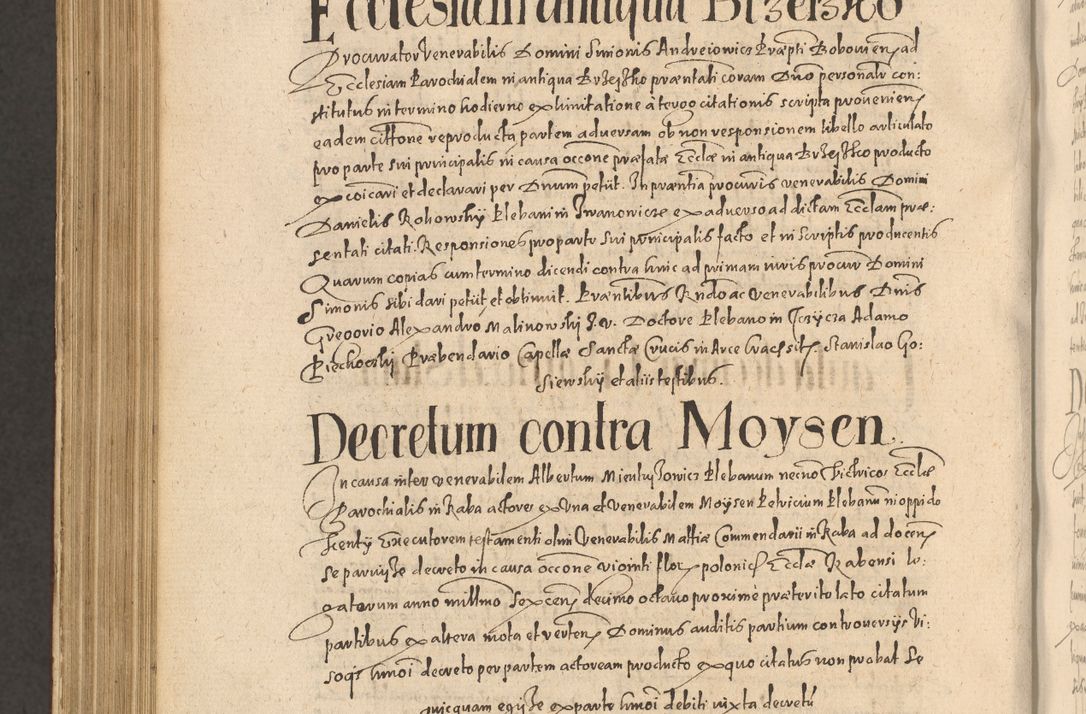 Ecclesiam antiqua Brzeszko
Procurator Venerabilis Domini Simonis Andreiowicz Præpti Bobovien ad
Ecclesiam Parochialem in antiqua Brzeszko præntati coram Dno personalr con:
stitutus in termino hodierno ex limitatione à tergo citationis scripta provenien
eadem citttone reproducta partem adversam ob non responsionem libello articulato
pro parte sui principalis in causa occone præfatæ Ecclæ in antiqua Brzeszko producto
excoicari et declarari per Dnum petiit. In præntia procuris venerabilis Domini
Danielis Rohowskÿ Plebani in Iwanovicze ex adverso ad dictam Ecclam præ:
sentati citati. Responsiones pro parte sui principalis facto et in scriptis producentis
Quarum copias cum termino dicendi contra hinc ad primam iuris procur Domini
Simonis sibi dari petiit et obtinuit. Præntibus Rndo ac Venerabilibus Dnis
Gregorio Alexandro Malinowskÿ J. v. Doctore Plebano in Adamo
Piechockÿ Præbendario Capellæ Sanctæ Crucis in Arce Crac sit. Stanislao Go:
siewskÿ et aliis testibus.
Decretum contra Moysen.
In causa inter venerabilem Albertum Plebanum necno Victricos Ecclæ
Parochialis in Raba actores ex Una et Venerabilem Moÿsen Pelricium Plebanu in oppido
Kentÿ Executorem testamenti olim Venerabilis Mattiæ Commendarii in Raba ad docen
se paruisse decreto in causa occone viginti flor polonic Ecclæ Rabensi le:
gatorum anno millmo Sexcen decimo octavo proxime præterito lato citatum
partibus ex altera mota et verten Dominus auditis partium controversÿs vi:
soqs hmoi decreto per partem actoream producto ex quo citatus non probat se
quicquam egisse ex parte hmoi debiti iuxta decretu